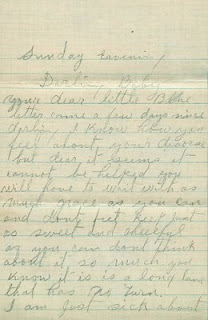 Sunday Evenin,
Darlin Babe
your dear little Blue
letter came a few days since
darlin, I know how you
feel about, your divorce
but dear it seems it
cannot be helped you
will have to wait with as
much grace as you can
and dont fret keep just
as sweet and cheerful
as you can dont think
about it so much you
know it is a long lane
that has no turn.
I am just sick about